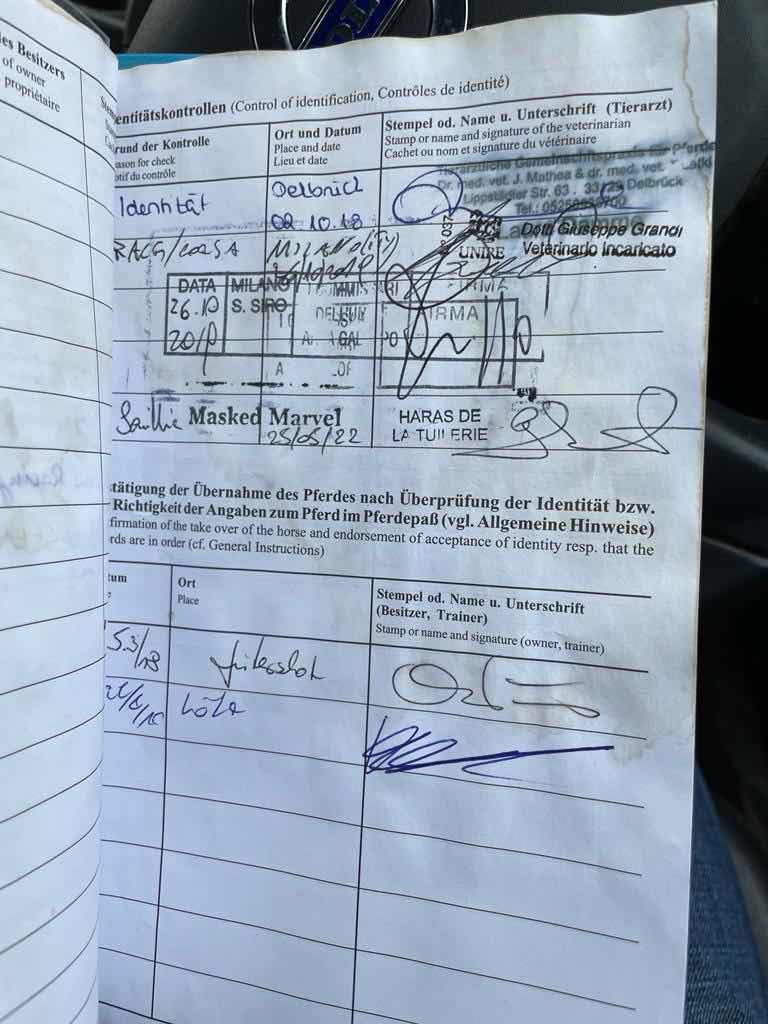 es Besitzers
of owner
propriétaire
entitätskontrollen (Control of identification, Contrôles de identité)
rund der Kontrolle
ason for check
otif du contrôle
Ort und Datum
Place and date
Lieu et date
Stempel od. Name u. Unterschrift (Tierarzt)
Stamp or name and signature of the veterinarian
Cachet ou nom et signature du vétérinaire
Identität
Delbrück
02.10.18
Tierärztliche Gemeinschaftspraxis für Pferde
Dr. med. vet. J. Mathea & dr. med. vet.
Lippstädter Str. 63 . 33129 Delbrück
Tel.:
RACE/CORSA
MILANO (ITY)
UNIRE
Dott. Giuseppe Grandi
Veterinario Incaricato
DATA
MILANO
S. SIRO
FIRMA
26.10
2018
Saillie Masked Marvel
25/05/22
HARAS DE
LA TUILERIE
tätigung der Übernahme des Pferdes nach Überprüfung der Identität bzw.
Richtigkeit der Angaben zum Pferd im Pferdepaß (vgl. Allgemeine Hinweise)
firmation of the take over of the horse and endorsement of acceptance of identity resp. that the
rds are in order (cf. General Instructions)
tum
Ort
Place
Stempel od. Name u. Unterschrift
(Besitzer, Trainer)
Stamp or name and signature (owner, trainer)